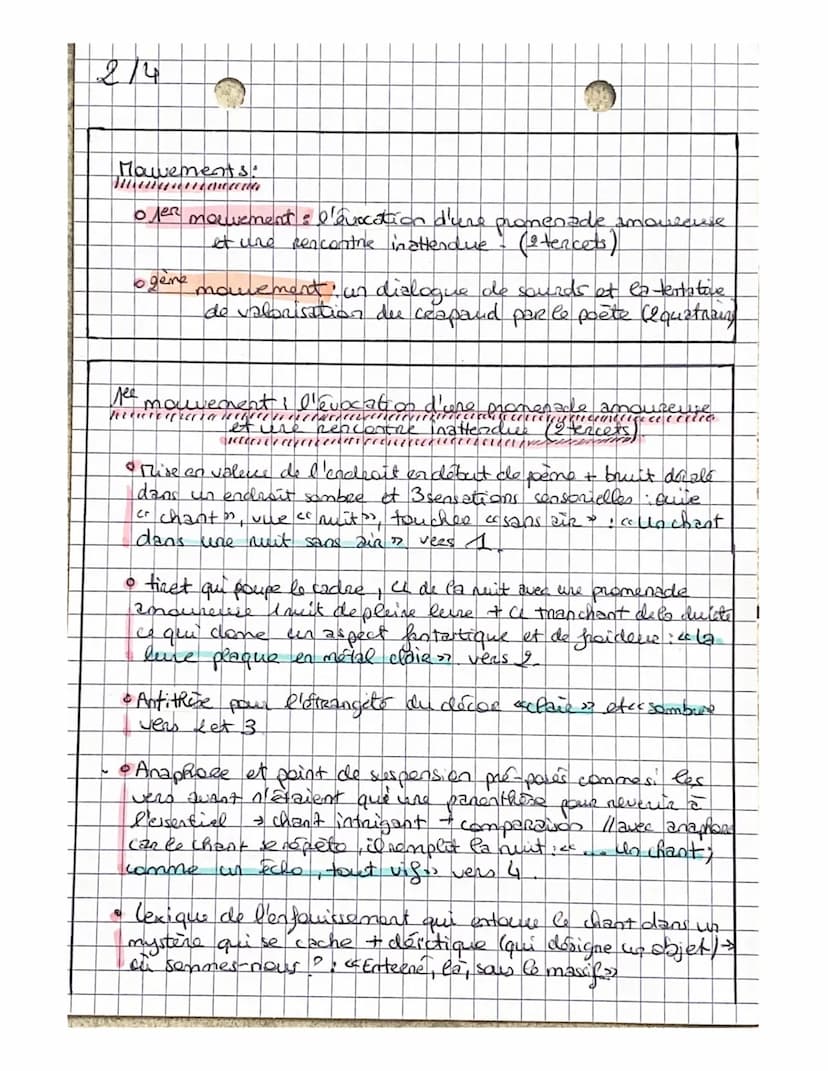 2/4
Mouvements:
1er mouvement : l'évocation d'une promenade amoureuse
et une rencontre inattendue : (2 tercets)
2ème mouvement : un dialogue de sourds et la tentative
de valorisation du crapaud par le poète (2 quatrain)
1er mouvement : l'évocation d'une promenade amoureuse
et une rencontre inattendue (2 tercets)
Mise en valeur de l'endroit en début de poème + bruit
dans un endroit sombre et 3 sensations sensorielles : ouïe
"chant", vue "nuit", toucher "sans air" : "Un chant
dans une nuit sans air" vers 1.
tiret qui coupe le cadre, CL de la nuit avec une promenade
amoureuse 1 nuit de pleine lune + CL tranchant de la
ce qui done un aspect fantastique et de froideur : "la
lune plaque en métal clair" vers 2
Antithèse pour l'étrangeté du décor "clair" et "sombre
vers 2 et 3
Anaphore et point de suspension pré-posés comme si les
vers avant n'étaient qu'une parenthèse pour revenir à
l'essentiel → chant intrigant + comparaison // avec anaphore
car le chant se répète, il remplit la nuit : "... Un chant;
comme un Écho, tout vif" vers 4.
Lexique de l'enfouissement qui entoure le chant dans un
mystère qui se cache + déictique (qui désigne un objet) →
où sommes-nous ? : "Enterré, là, sous le massif"